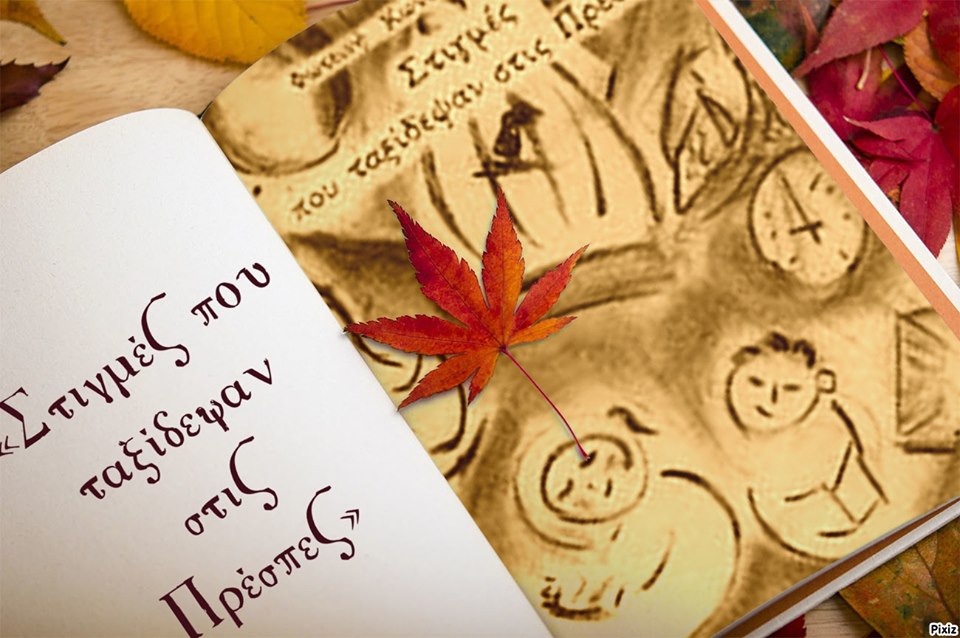 «Στιγμές που
ταξίδεψαν
στις
Πρέσπες»
Φωτεινή
Στιγμές
που ταξίδεψαν στις
Pixiz